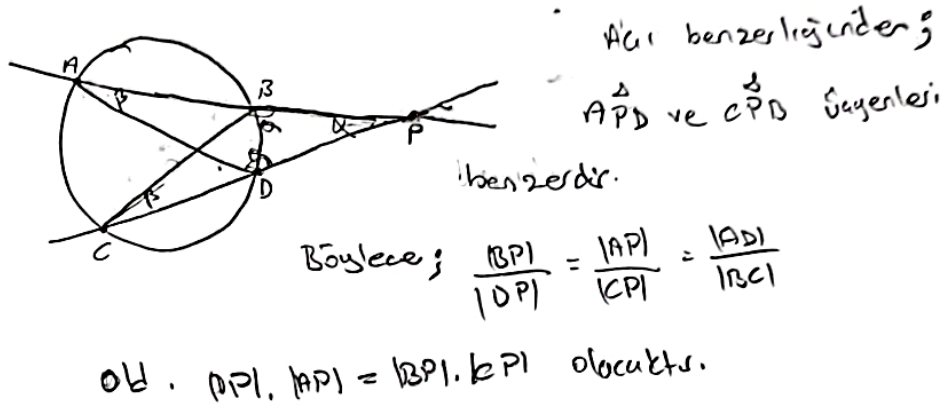 Açı benzerliğinden ;
APD ve CPB üçgenleri
benzerdir.
A
B
β
α
P
D
β
C
Böylece ; |BP| / |DP| = |AP| / |CP| = |AD| / |BC|
old. |DP|. |AP| = |BP|. |CP| olacaktır.